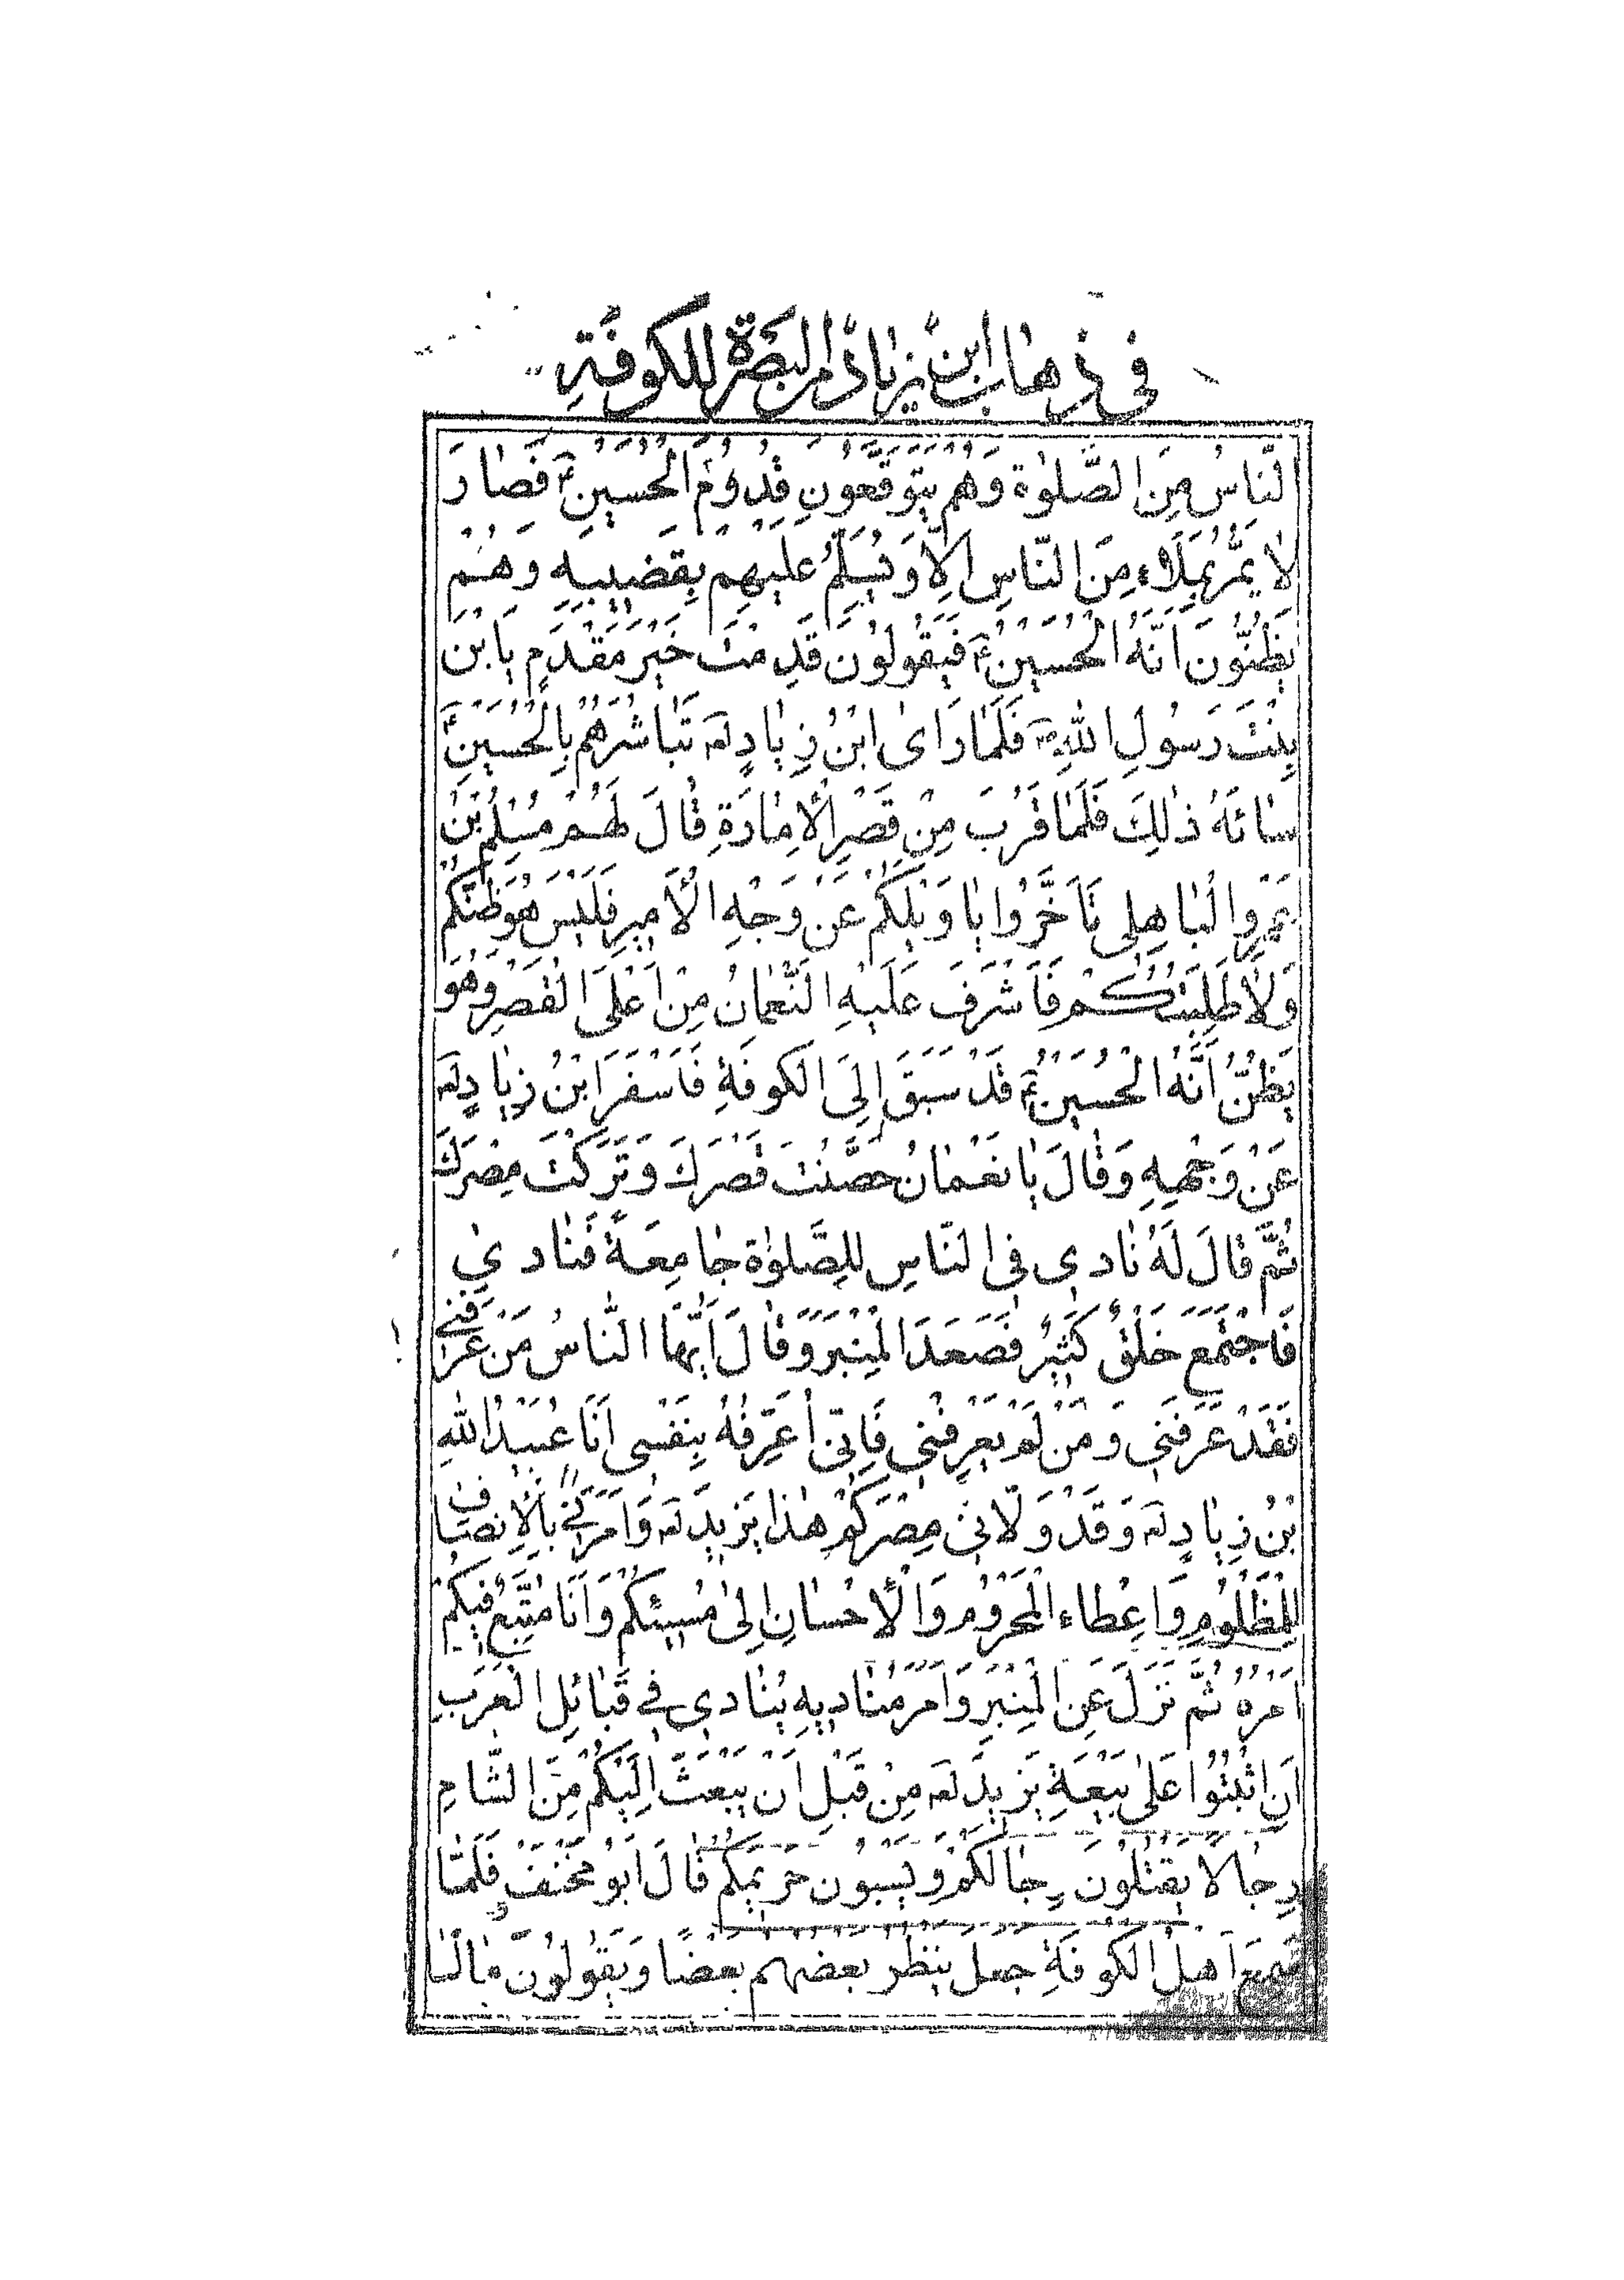 في ذهاب ابن زياد من البصرة للكوفة
النَّاسُ مِنَ الصَّلوٰةِ وَهُمْ يَتَوَقَّعُونَ قُدُومَ الْحُسَيْنِ ع فَصَارَ
لَا يَمُرُّ بِمَلَاءٍ مِنَ النَّاسِ اِلَّا وَيُسَلِّمُ عَلَيْهِمْ بِقَضِيبِهِ وَهُمْ
يَظُنُّونَ اَنَّهُ الْحُسَيْنُ ع فَيَقُولُونَ قَدِمْتَ خَيْرَ مَقْدَمٍ يَا بْنَ
بِنْتِ رَسُولِ اللهِ ص فَلَمَّا رَاىٰ ابْنُ زِيَادٍ لعه تَبَاشُرَهُمْ بِالْحُسَيْنِ ع
سَائَهُ ذٰلِكَ فَلَمَّا قَرُبَ مِنْ قَصْرِ الْاِمَارَةِ قَالَ لَهُمْ مُسْلِمُ بْنُ
عَمْرِو الْبَاهِلِي تَاَخَّرُوا يَا وَيْلَكُمْ عَنْ وَجْهِ الْاَمِيرِ فَلَيْسَ هُوَ ظَنَّكُمْ
وَلَا طَلِبَتَكُمْ فَاَشْرَفَ عَلَيْهِ النُّعْمَانُ مِنْ اَعْلَى الْقَصْرِ وَهُوَ
يَظُنُّ اَنَّهُ الْحُسَيْنُ ع قَدْ سَبَقَ اِلَى الْكُوفَةِ فَاَسْفَرَ ابْنُ زِيَادٍ لعه
عَنْ وَجْهِهِ وَقَالَ يَا نُعْمَانُ حَصَّنْتَ قَصْرَكَ وَتَرَكْتَ مِصْرَكَ
ثُمَّ قَالَ لَهُ نَادِي فِي النَّاسِ لِلصَّلوٰةِ جَامِعَةً فَنَادىٰ
فَاجْتَمَعَ خَلْقٌ كَثِيرٌ فَصَعَدَ الْمِنْبَرَ وَقَالَ اَيُّهَا النَّاسُ مَنْ عَرَفَنِي
فَقَدْ عَرَفَنِي وَمَنْ لَمْ يَعْرِفْنِي فَاِنِّي اُعَرِّفُهُ بِنَفْسِي اَنَا عُبَيْدُ اللهِ
بْنُ زِيَادٍ لعه وَقَدْ وَلَّانِي مِصْرَكُمْ هٰذَا يَزِيدُ لعه وَاَمَرَنِي بِالْاِنْصَافِ
لِلْمَظْلُومِ وَاِعْطَاءِ الْمَحْرُومِ وَالْاِحْسَانِ اِلىٰ مُسِيئِكُمْ وَاَنَا مُتَّبِعٌ فِيكُمْ
اَمْرَهُ ثُمَّ نَزَلَ عَنِ الْمِنْبَرِ وَاَمَرَ مُنَادِيهِ يُنَادِي فِي قَبَائِلِ الْعَرَبِ
اَنِ اثْبُتُوا عَلىٰ بَيْعَةِ يَزِيدَ لعه مِنْ قَبْلِ اَنْ يَبْعَثَ اِلَيْكُمْ مِنَ الشَّامِ
رِجَالًا يَقْتُلُونَ رِجَالَكُمْ وَيَسْبُونَ حَرِيمَكُمْ قَالَ اَبُو مِخْنَفٍ فَلَمَّا
سَمِعَ اَهْلُ الْكُوفَةِ جَعَلَ يَنْظُرُ بَعْضُهُمْ بَعْضًا وَيَقُولُونَ مَالَنَا